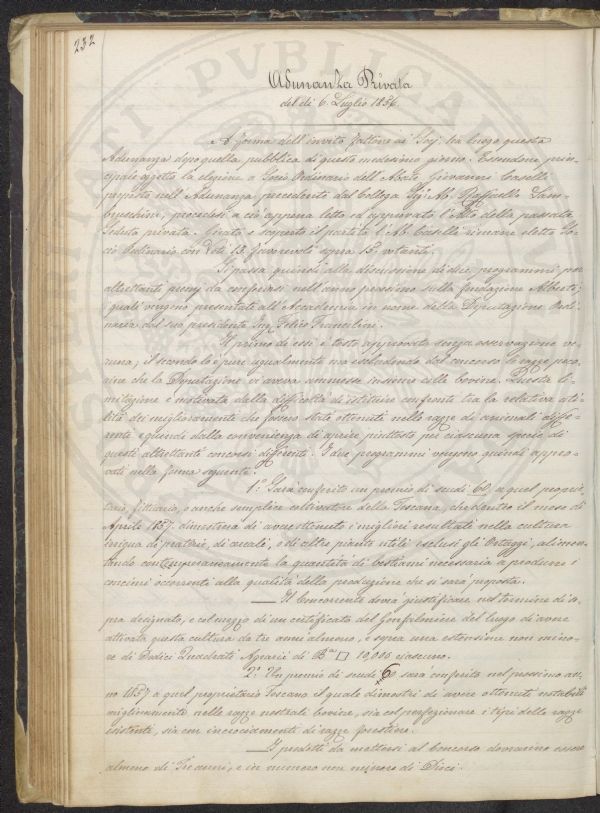 232
Adunanza Privata
del dì 6. Luglio 1856.
A forma dell'invito fattone ai Sigj. ha luogo questa
Adunanza dopo quella pubblica di questo medesimo giorno. Essendone prin-
cipale oggetto la elezione a Socio Ordinario dell'Abate Giovanni Caselli
proposto nell'Adunanza precedente dal Collega Sigr. Ab. Raffaello Lam-
bruschini, procedesi a ciò appena letto ed approvato l'Atto della passata
Seduta privata. Girato e scoperto il partito l'Ab. Caselli rimane eletto So-
cio Ordinario con Voti 13. favorevoli sopra 15. votanti.
Si passa quindi alla discussione di due programmi per
altrettanti premj da conferirsi nell'anno prossimo sulla fondazione Alberti;
quali vengono presentati all'Accademia in nome della Deputazione Ordi-
naria dal suo presidente Sig. Felice Francolini.
Il primo di essi è tosto approvato senza osservazione ve-
runa; il secondo lo è pure ugualmente ma escludendo dal concorso le razze peco-
rine che la Deputazione vi aveva ammesse insieme colle bovine. Questa li-
mitazione è motivata dalla difficoltà di istituire confronto tra la relativa uti-
lità dei miglioramenti che fossero stati ottenuti nelle razze di animali diffe-
renti e quindi dalla convenienza di aprire piuttosto per ciascuna specie di
questi altrettanti concorsi differenti. I due programmi vengono quindi appro-
vati nella forma seguente.
1.° Sarà conferito un premio di scudi 60 a quel proprie-
tario, fittuario, o anche semplice cultivatore della Toscana, che dentro il mese di
Aprile 1857. dimostrerà di avere ottenuti i migliori resultati nella cultura
irrigua di praterie, di cereali, e di altre piante utili esclusi gli Ortaggi, alimen-
tando contemporaneamente la quantità di bestiami necessaria a produrre i
concimi occorrenti alla qualità della produzione che si sarà proposta.
Il Concorrente dovrà giustificare nel termine di so-
pra designato, e col mezzo di un certificato del Gonfaloniere del luogo di avere
attivata questa cultura da tre anni almeno, e sopra una estensione non mino-
re di Dodici Quadrati Agrarii di Ba □ 10,000 ciascuno.
2.° Un premio di scudi 60 sarà conferito nel prossimo an-
no 1857 a quel proprietario Toscano il quale dimostri di avere ottenuti notabili
miglioramenti nelle razze nostrali bovine, sia col perfezionare i tipi delle razze
esistenti, sia con incrociamenti di razze forestiere.
I prodotti da mettersi al Concorso dovranno essere
almeno di Tre anni, e in numero non minore di Dieci.